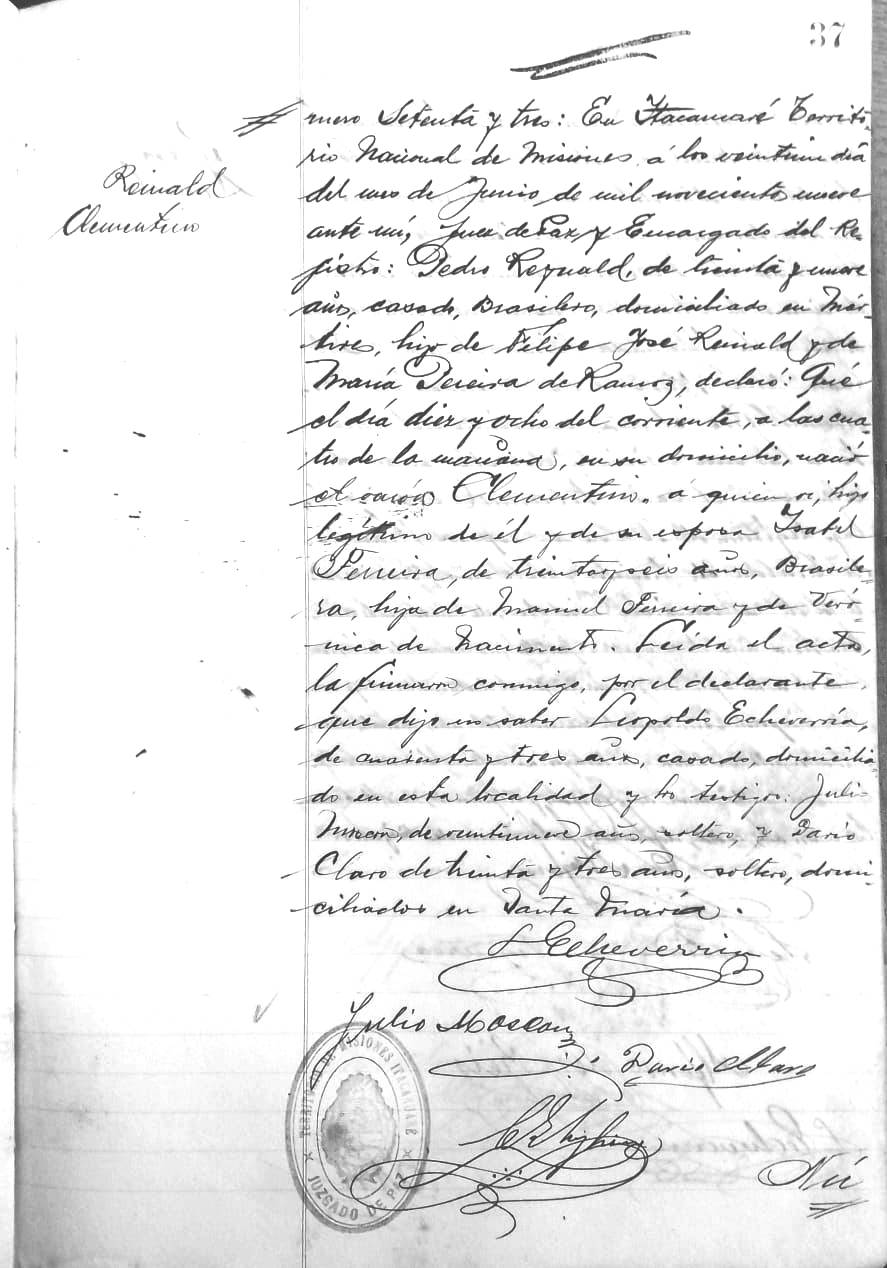 37
Reinald
Clementino
mero Setenta y tres: En Itacaruaré Territo-
rio Nacional de Misiones á los veintiun dia
del mes de Junio de mil novecientos nueve
ante mí, Juez de Paz y Encargado del Re-
gistro: Pedro Reynald, de treinta y nueve
años, casado, Brasilero, domiciliado en Már-
tires, hijo de Felipe José Reinald y de
María Pereira de Ramoz, declaró: Que
el día diez y ocho del corriente, a las cua-
tro de la mañana, en su domicilio, nació
el varón Clementino. a quien vi, hijo
legítimo de él y de su esposa Isabel
Ferreira, de treinta y seis años, Brasile-
ra, hija de Manuel Ferreira y de Veró-
nica de Nacimento. Leída el acta,
la firmaron conmigo, por el declarante
que dijo no saber Leopoldo Echeverría,
de cuarenta y tres años, casado, domicilia-
do en esta localidad y los testigos: Julio
de veintinueve años, soltero, y Dario
Claro de treinta y tres años, soltero, domi-
ciliados en Santa María.
L Echeverria
Julio
Dario Claro
TERRITORIO DE MISIONES
JUZGADO DE PAZ